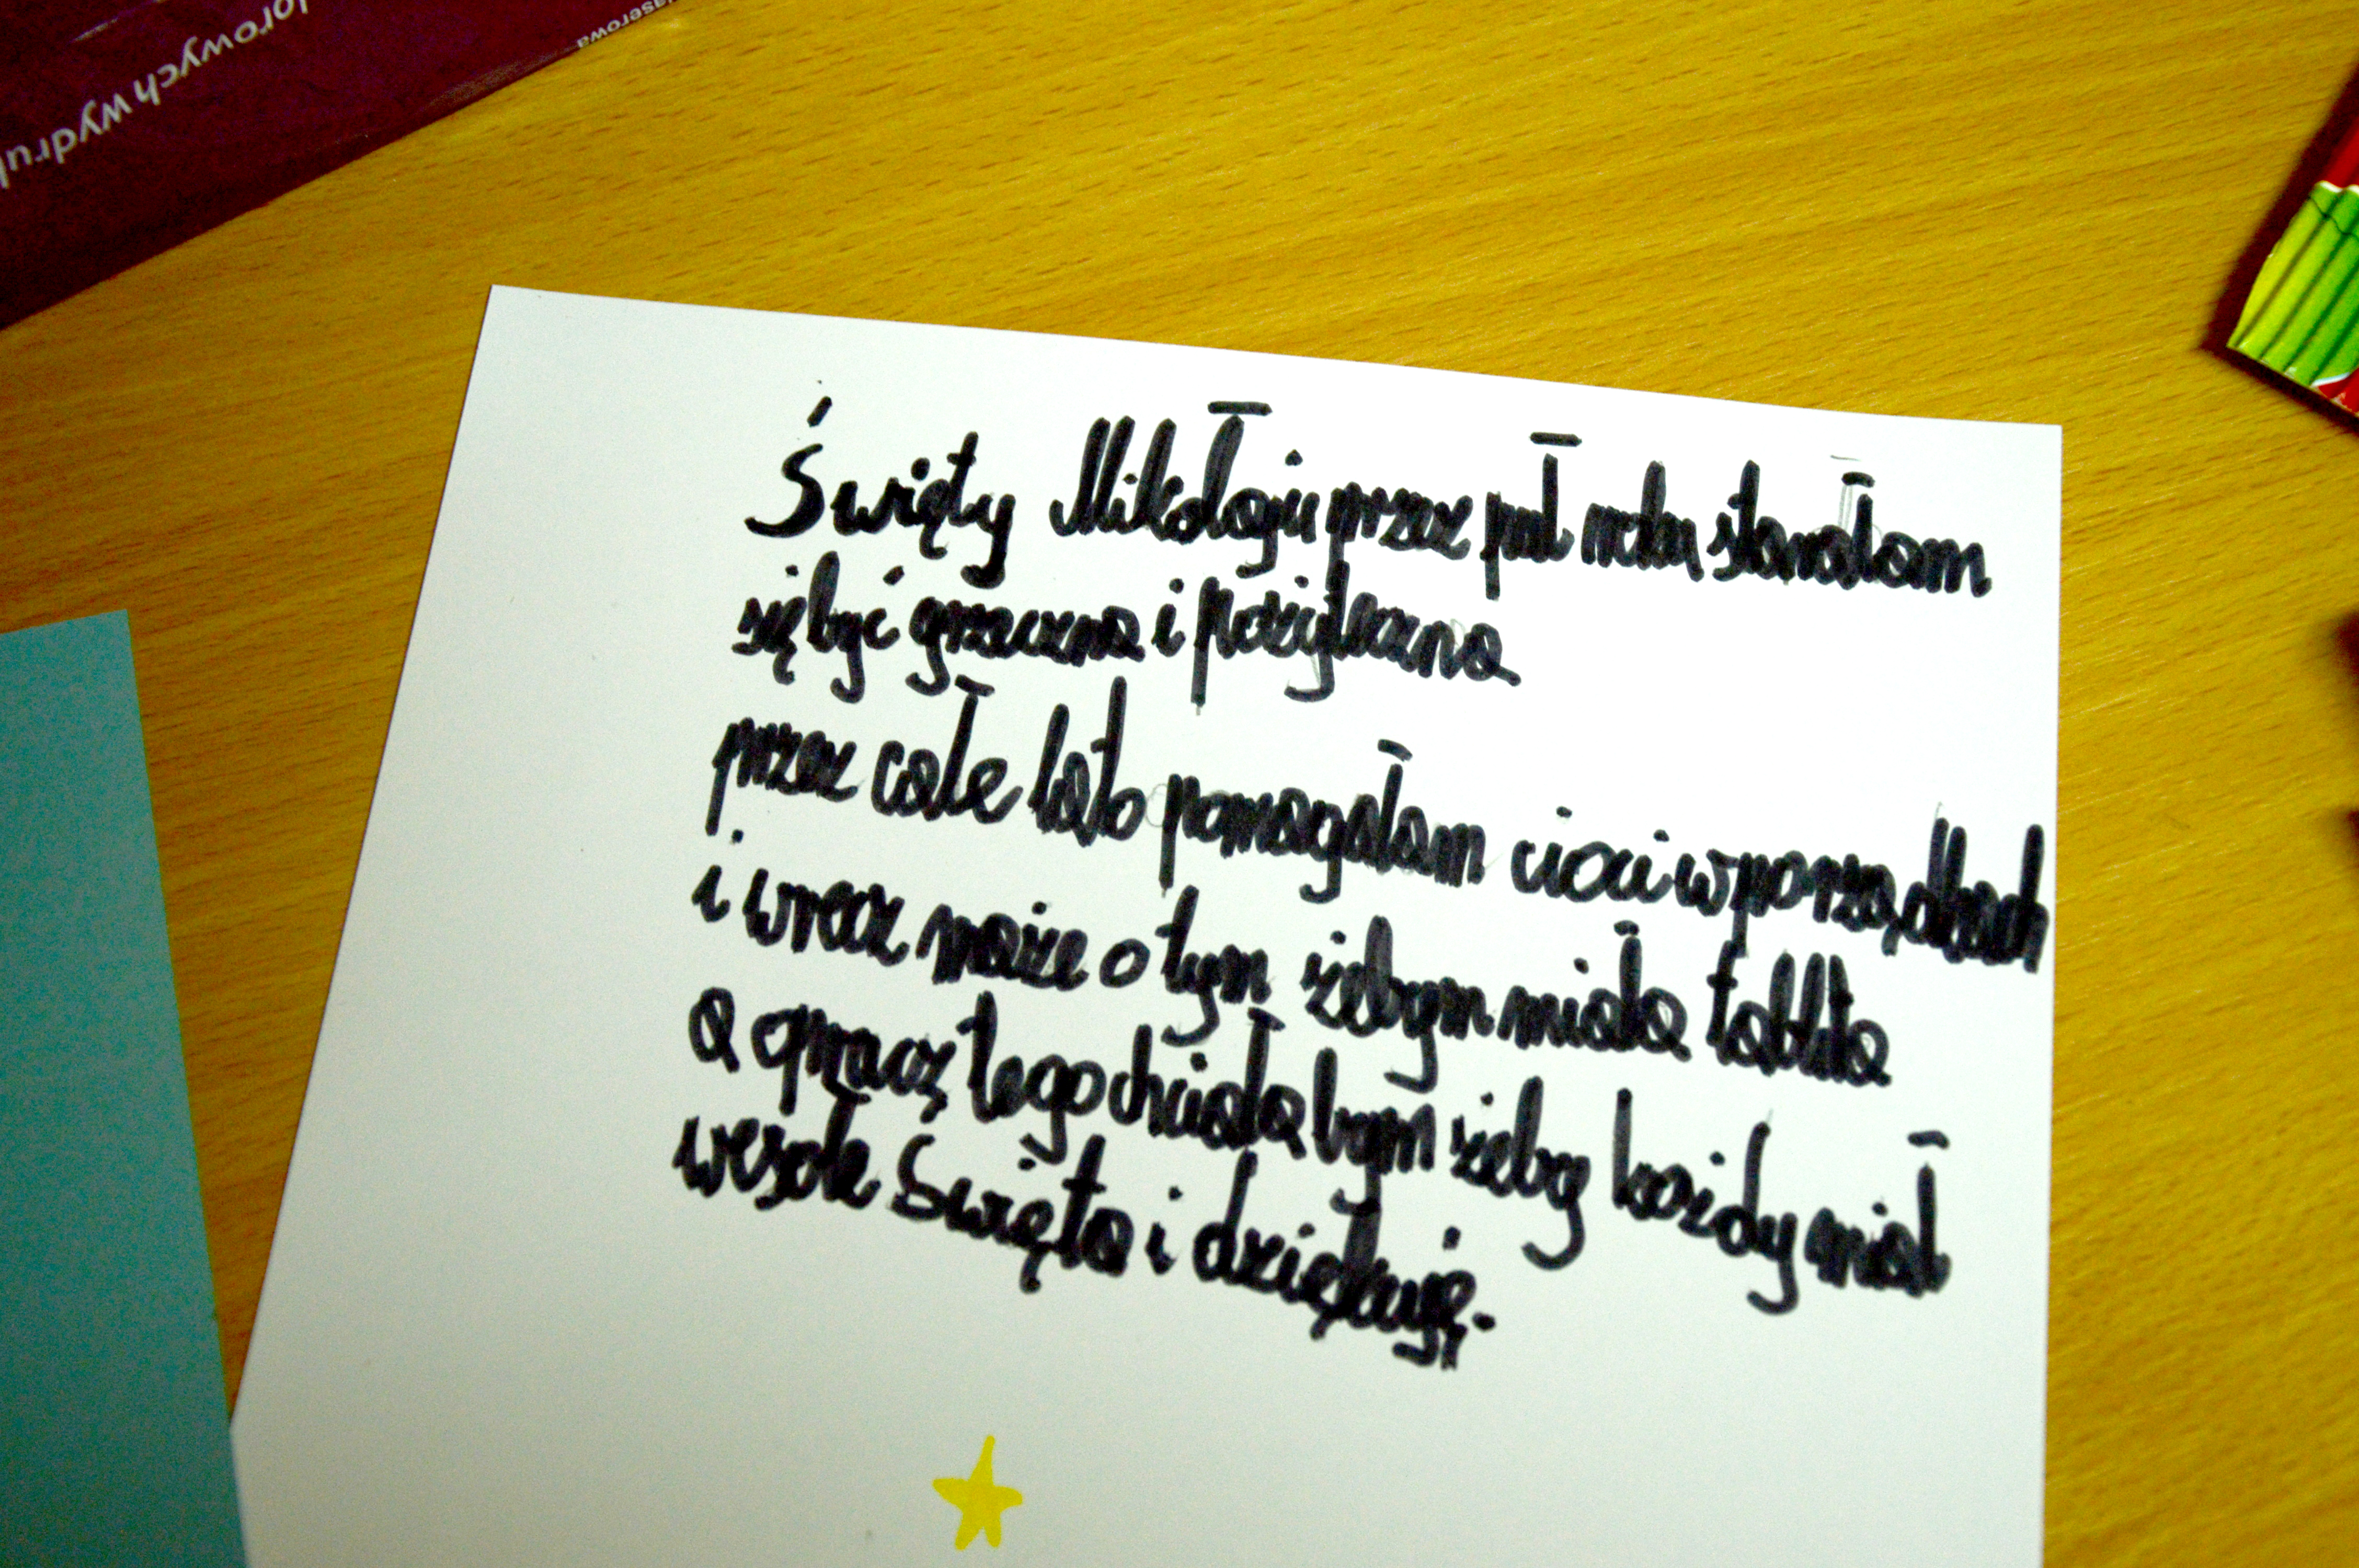 lorowych wydruk
laserowa
Święty Mikołaju przez puł roku starałam
się być grzeczna i pożyteczna
przez całe lato pomagałam cioci w porządkach
i wrecz marze o tym żebym miała tableta
a oprucz tego chciała bym żeby każdy miał
wesołe Święta i dziękuję.